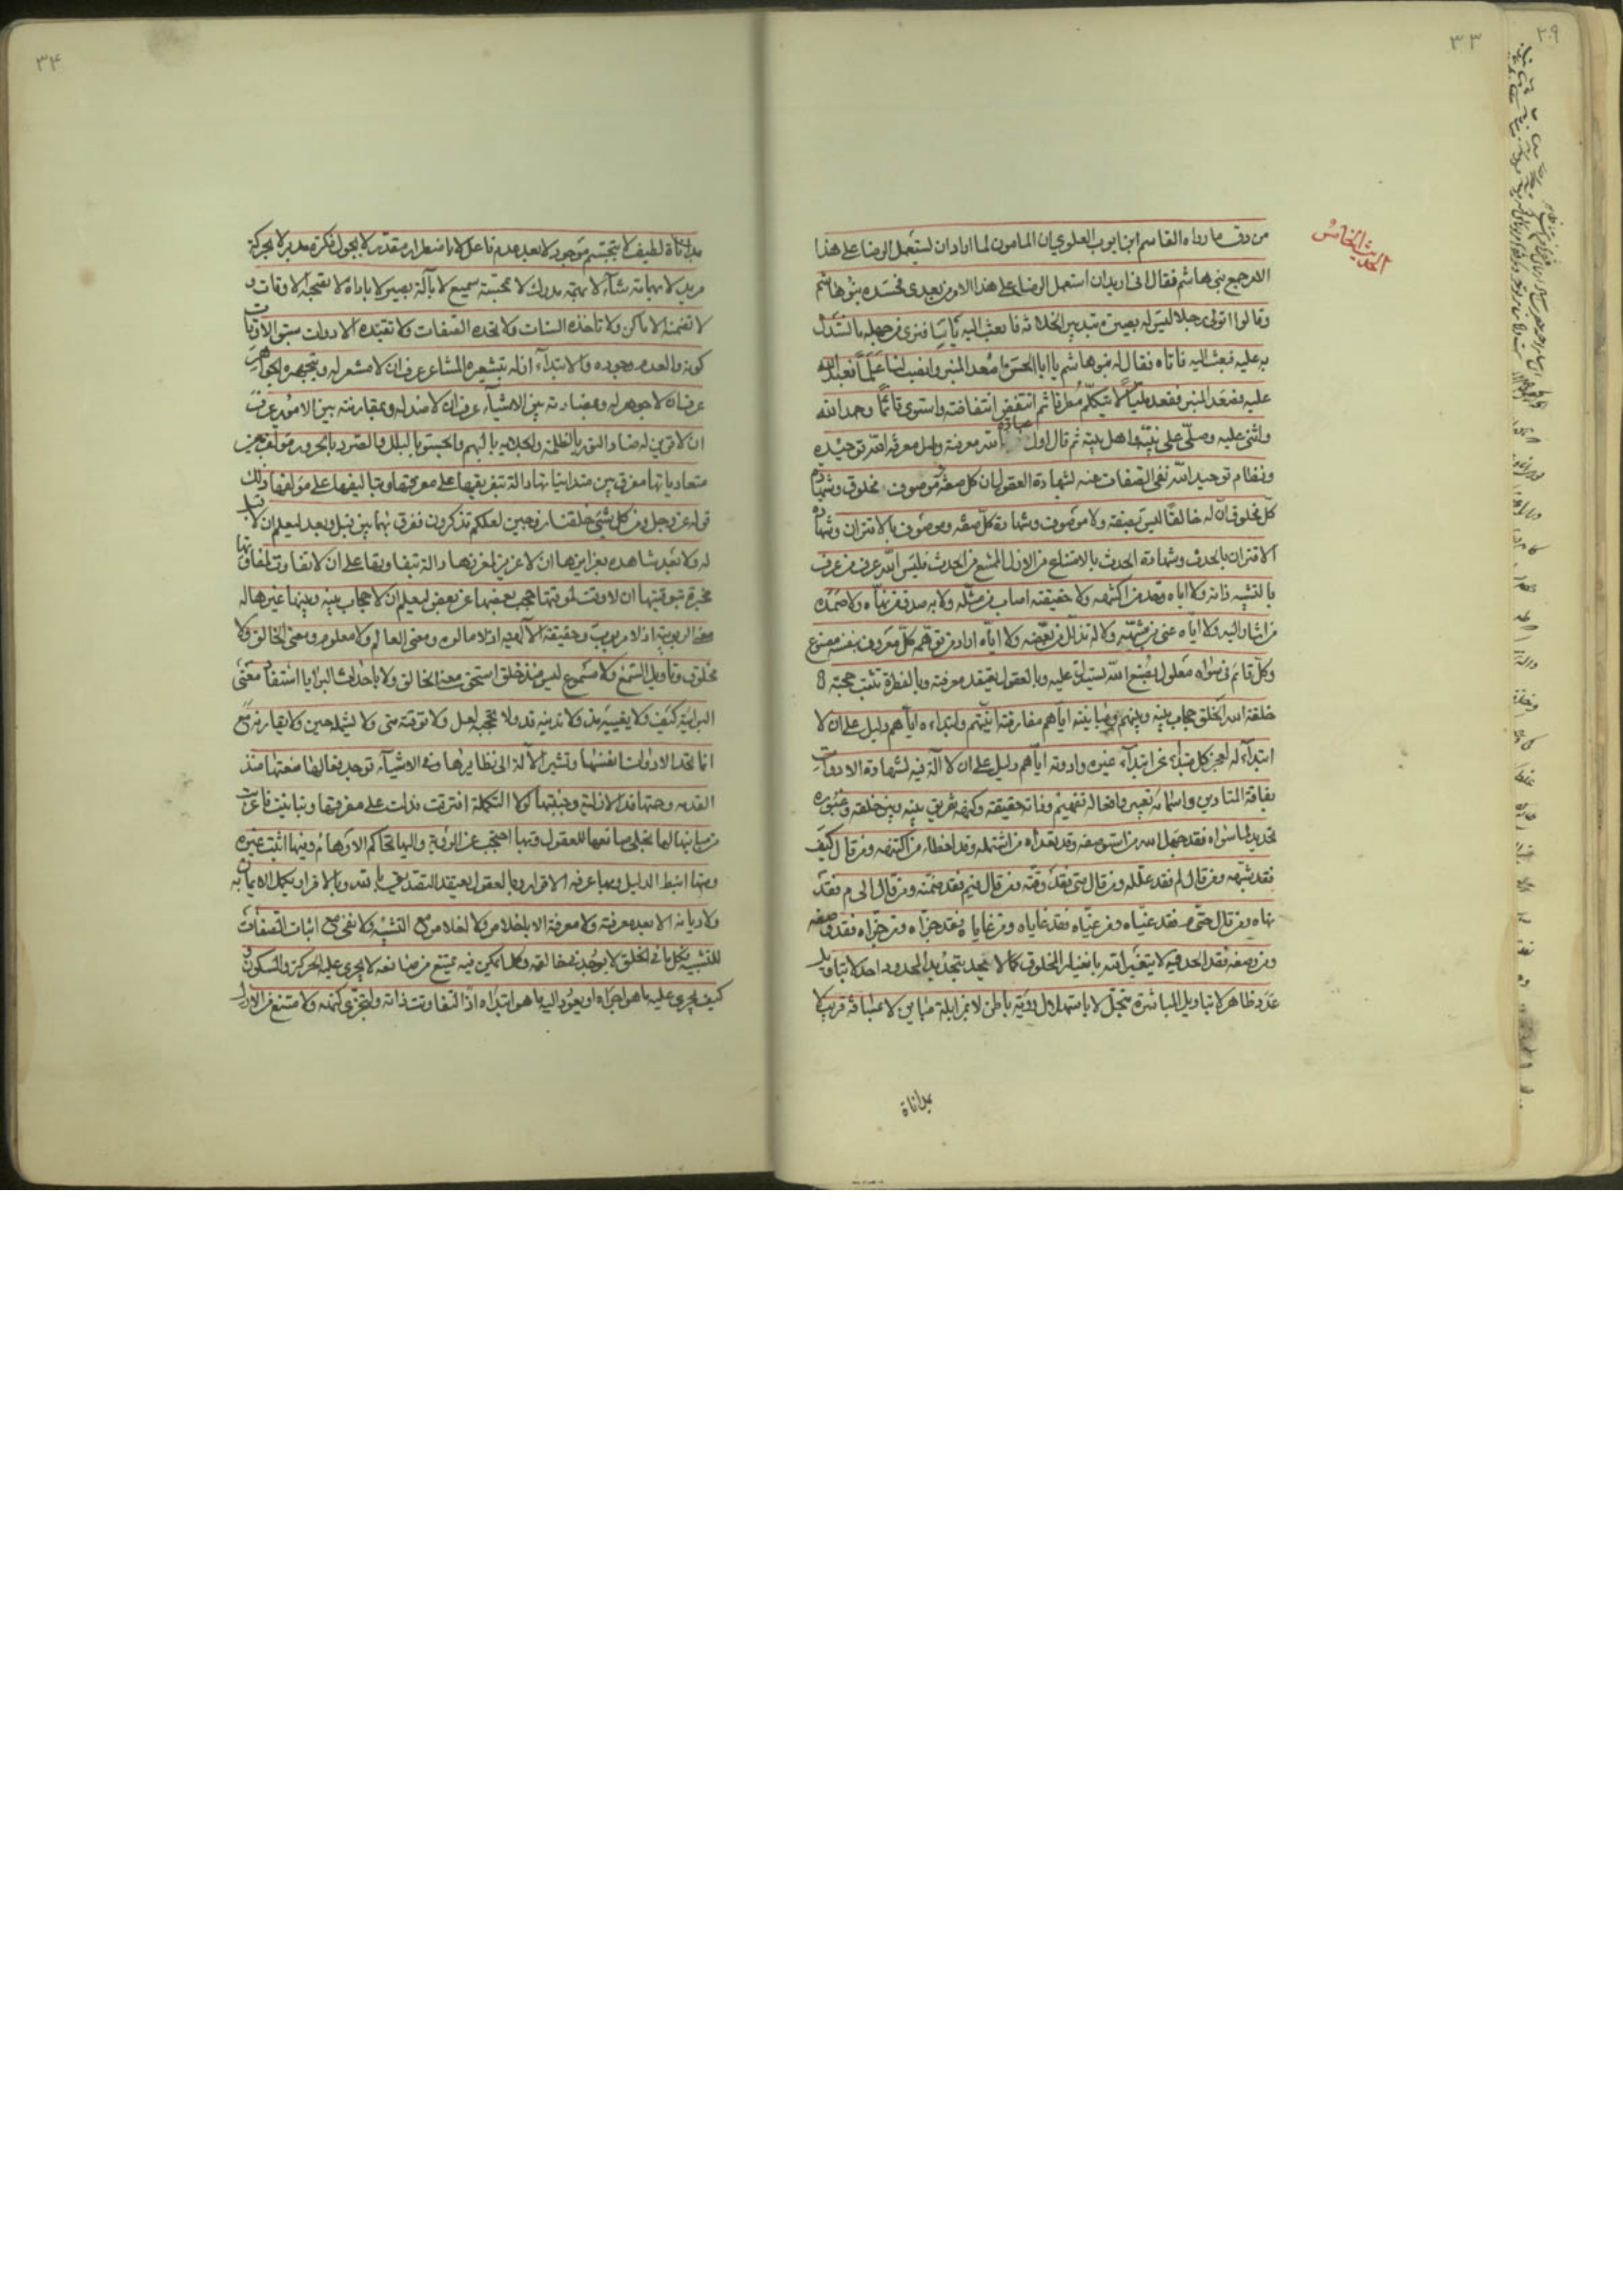 ٣٣
الحديث الخامس
من دوق ما رواه القاسم ابن ايوب العلوي ان المامون لما اراد ان يستعمل الرضا على هذا
الامر جمع بني هاشم فقال اني اريد ان استعمل الرضا على هذا الامر من بعدي فحسده بنو هاشم
وقالوا اتولى رجلا جاهلا ليس له بصيرة بتدبير الخلافة فابعث اليه ياتنا فترى من جهله ما تستدل
به عليه فبعث اليه فاتاه فقال له بنو هاشم يا ابا الحسن اصعد المنبر وانصب لنا علما نعبد الله
عليه فصعد المنبر فقعد مليّا لا يتكلم مطرقا ثم انتفض انتفاضته واستوى قائما وحمد الله
واثنى عليه وصلى على نبيه واهل بيته ثم قال اول عبادة الله معرفته واصل معرفة الله توحيده
ونظام توحيد الله نفي الصفات عنه لشهادة العقول ان كل صفة وموصوف مخلوق وشهادة
كل مخلوق ان له خالقا ليس بصفة ولا موصوف وشهادة كل صفة وموصوف بالاقتران وشهادة
الاقتران بالحدث وشهادة الحدث بالامتناع من الازل الممتنع من الحدث فليس الله عرف من عرف
بالتشبيه ذاته ولا اياه وحد من اكتنهه ولا حقيقته اصاب من مثله ولا به صدق من نهاه ولا صمد صمده
من اشار اليه ولا اياه عنى من شبهه ولا له تذلل من بعضه ولا اياه اراد من توهمه كل معروف بنفسه مصنوع
وكل قائم في سواه معلول بصنع الله يستدل عليه وبالعقول يعتقد معرفته وبالفطرة تثبت حجته
خلقة الله الخلق حجاب بينه وبينهم ومباينته اياهم مفارقته انيتهم وابتداءه اياهم دليل على ان لا
ابتداء له لعجز كل مبتدء عن ابتداء غيره وادوته اياهم دليل على ان لا آلة فيه لشهادة الادوات
بفاقة المتادين واسمائه تعبير وافعاله تفهيم وذاته حقيقة وكنهه تفريق بينه وبين خلقه وغيوره
تحديد لما سواه فقد جهل الله من استوصفه وقد تعداه من اشتمله وقد اخطاه من اكتنهه ومن قال كيف
فقد شبهه ومن قال لم فقد علله ومن قال متى فقد وقته ومن قال فيم فقد ضمنه ومن قال الى م فقد
نهاه ومن قال حتى م فقد غياه ومن غياه فقد غاياه ومن غاياه فقد جزاه ومن جزاه فقد وصفه
ومن وصفه فقد الحد فيه لا يتغير الله بانغيار المخلوق كما لا يتحدد بتحديد المحدود احد لا بتاويل
عدد ظاهر لا بتاويل المباشرة متجل لا باستهلال رؤية باطن لا بمزايلة مباين لا بمسافة قريب لا
بمداناة
٣٤
بمداناة لطيف لا بتجسم موجود لا بعد عدم فاعل لا باضطرار مقدر لا بجول فكرة مدبر لا بحركة
مريد لا بهامة شآء لا بهمة مدرك لا بمجسة سميع لا بآلة بصير لا باداة لا تصحبه الاوقات و
لا تضمنه الاماكن ولا تاخذه السنات ولا تحده الصفات ولا تقيده الادوات سبق الاوقات
كونه والعدم وجوده والابتداء ازله بتشعيره المشاعر عرف ان لا مشعر له وبتجهيره الجواهر
عرف ان لا جوهر له وبمضادته بين الاشياء عرف ان لا ضد له وبمقارنته بين الامور عرف
ان لا قرين له ضاد النور بالظلمة والجلاية بالبهم والجسو بالبلل والصرد بالحرور مؤلف بين
متعادياتها مفرق بين متدانياتها دالة بتفريقها على مفرقها وبتاليفها على مؤلفها ذلك
قوله عز وجل ومن كل شيء خلقنا زوجين لعلكم تذكرون ففرق بها بين قبل وبعد ليعلم ان لا قبل
له ولا بعد شاهدة بغرايزها ان لا غريزة لمغرزها دالة بتفاوتها على ان لا تفاوت لمفاوتها
مخبرة بتوقيتها ان لا وقت لموقتها حجب بعضها عن بعض ليعلم ان لا حجاب بينه وبينها غيرها له
معنى الربوبية اذ لا مربوب وحقيقة الالهية اذ لا مالوه ومعنى العالم ولا معلوم ومعنى الخالق ولا
مخلوق وتاويل السمع ولا مسموع ليس منذ خلق استحق معنى الخالق ولا باحداثه البرايا استفاد معنى
البرائية كيف ولا يغيبه مذ ولا تدنيه قد ولا تحجبه لعل ولا توقته متى ولا يشمله حين ولا يقارنه مع
انما تحد الادوات انفسها وتشير الآلة الى نظايرها وفي الاشياء توجد فعالها منعتها منذ
القدمة وحمتها قد الازلية وجنبتها لولا التكملة افترقت فدلت على مفرقها وتباينت فاعربت
من مباينها لما تجلى صانعها للعقول وبها احتجب عن الرؤية واليها تحاكم الاوهام وفيها اثبت غيره
ومنها انيط الدليل وبها عرفه الاقرار وبالعقول يعتقد التصديق بالله وبالاقرار يكمل الايمان به
ولا ديانة الا بعد معرفة ولا معرفة الا باخلاص ولا اخلاص مع التشبيه ولا نفي مع اثبات الصفات
للتشبيه فكل ما في الخلق لا يوجد في خالقه وكل ما يمكن فيه يمتنع من صانعه لا يجري عليه الحركة والسكون و
كيف يجري عليه ما هو اجراه او يعود اليه ما هو ابتداه اذًا لتفاوتت ذاته ولتجزى كنهه ولامتنع من الازل